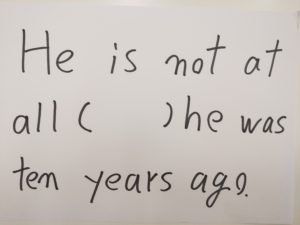 He is not at
all (    ) he was
ten years ago.